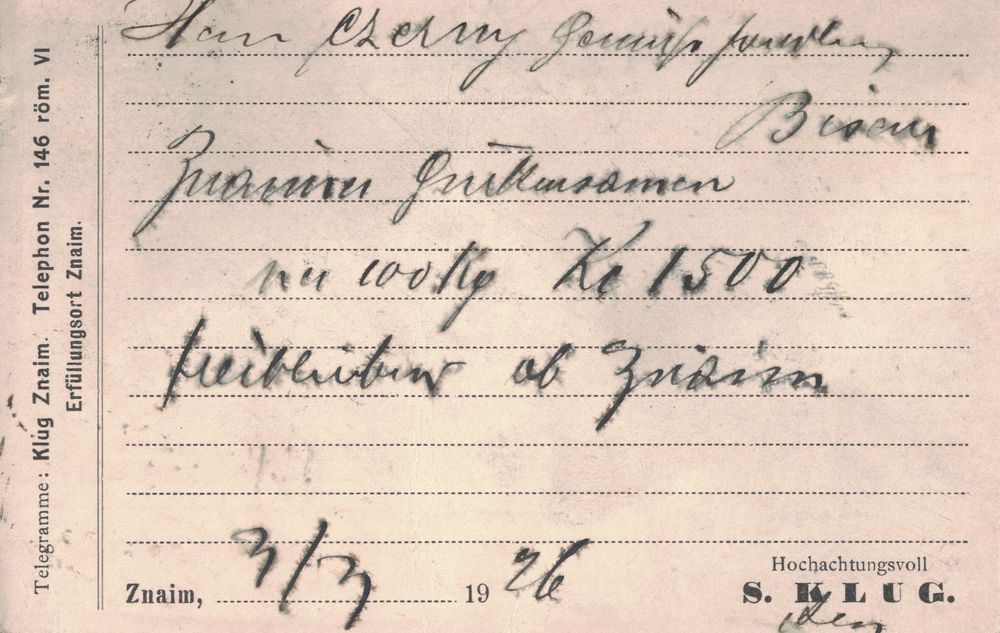 Telegramme: Klug Znaim. Telephon Nr. 146 röm. VI
Erfüllungsort Znaim.
Herrn Czerny
Bisenz
Znaimer Gurkensamen
100 Kg Kč 1500
freibleibend ab Znaim
Znaim, 3/3 1926
Hochachtungsvoll
S. KLUG.